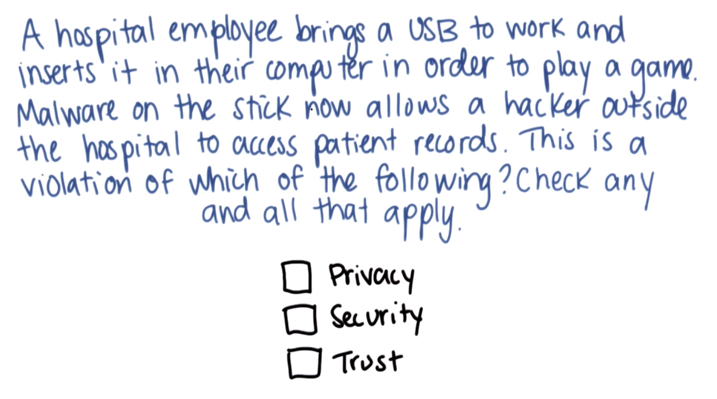 A hospital employee brings a USB to work and
inserts it in their computer in order to play a game.
Malware on the stick now allows a hacker outside
the hospital to access patient records. This is a
violation of which of the following? Check any
and all that apply.
Privacy
Security
Trust